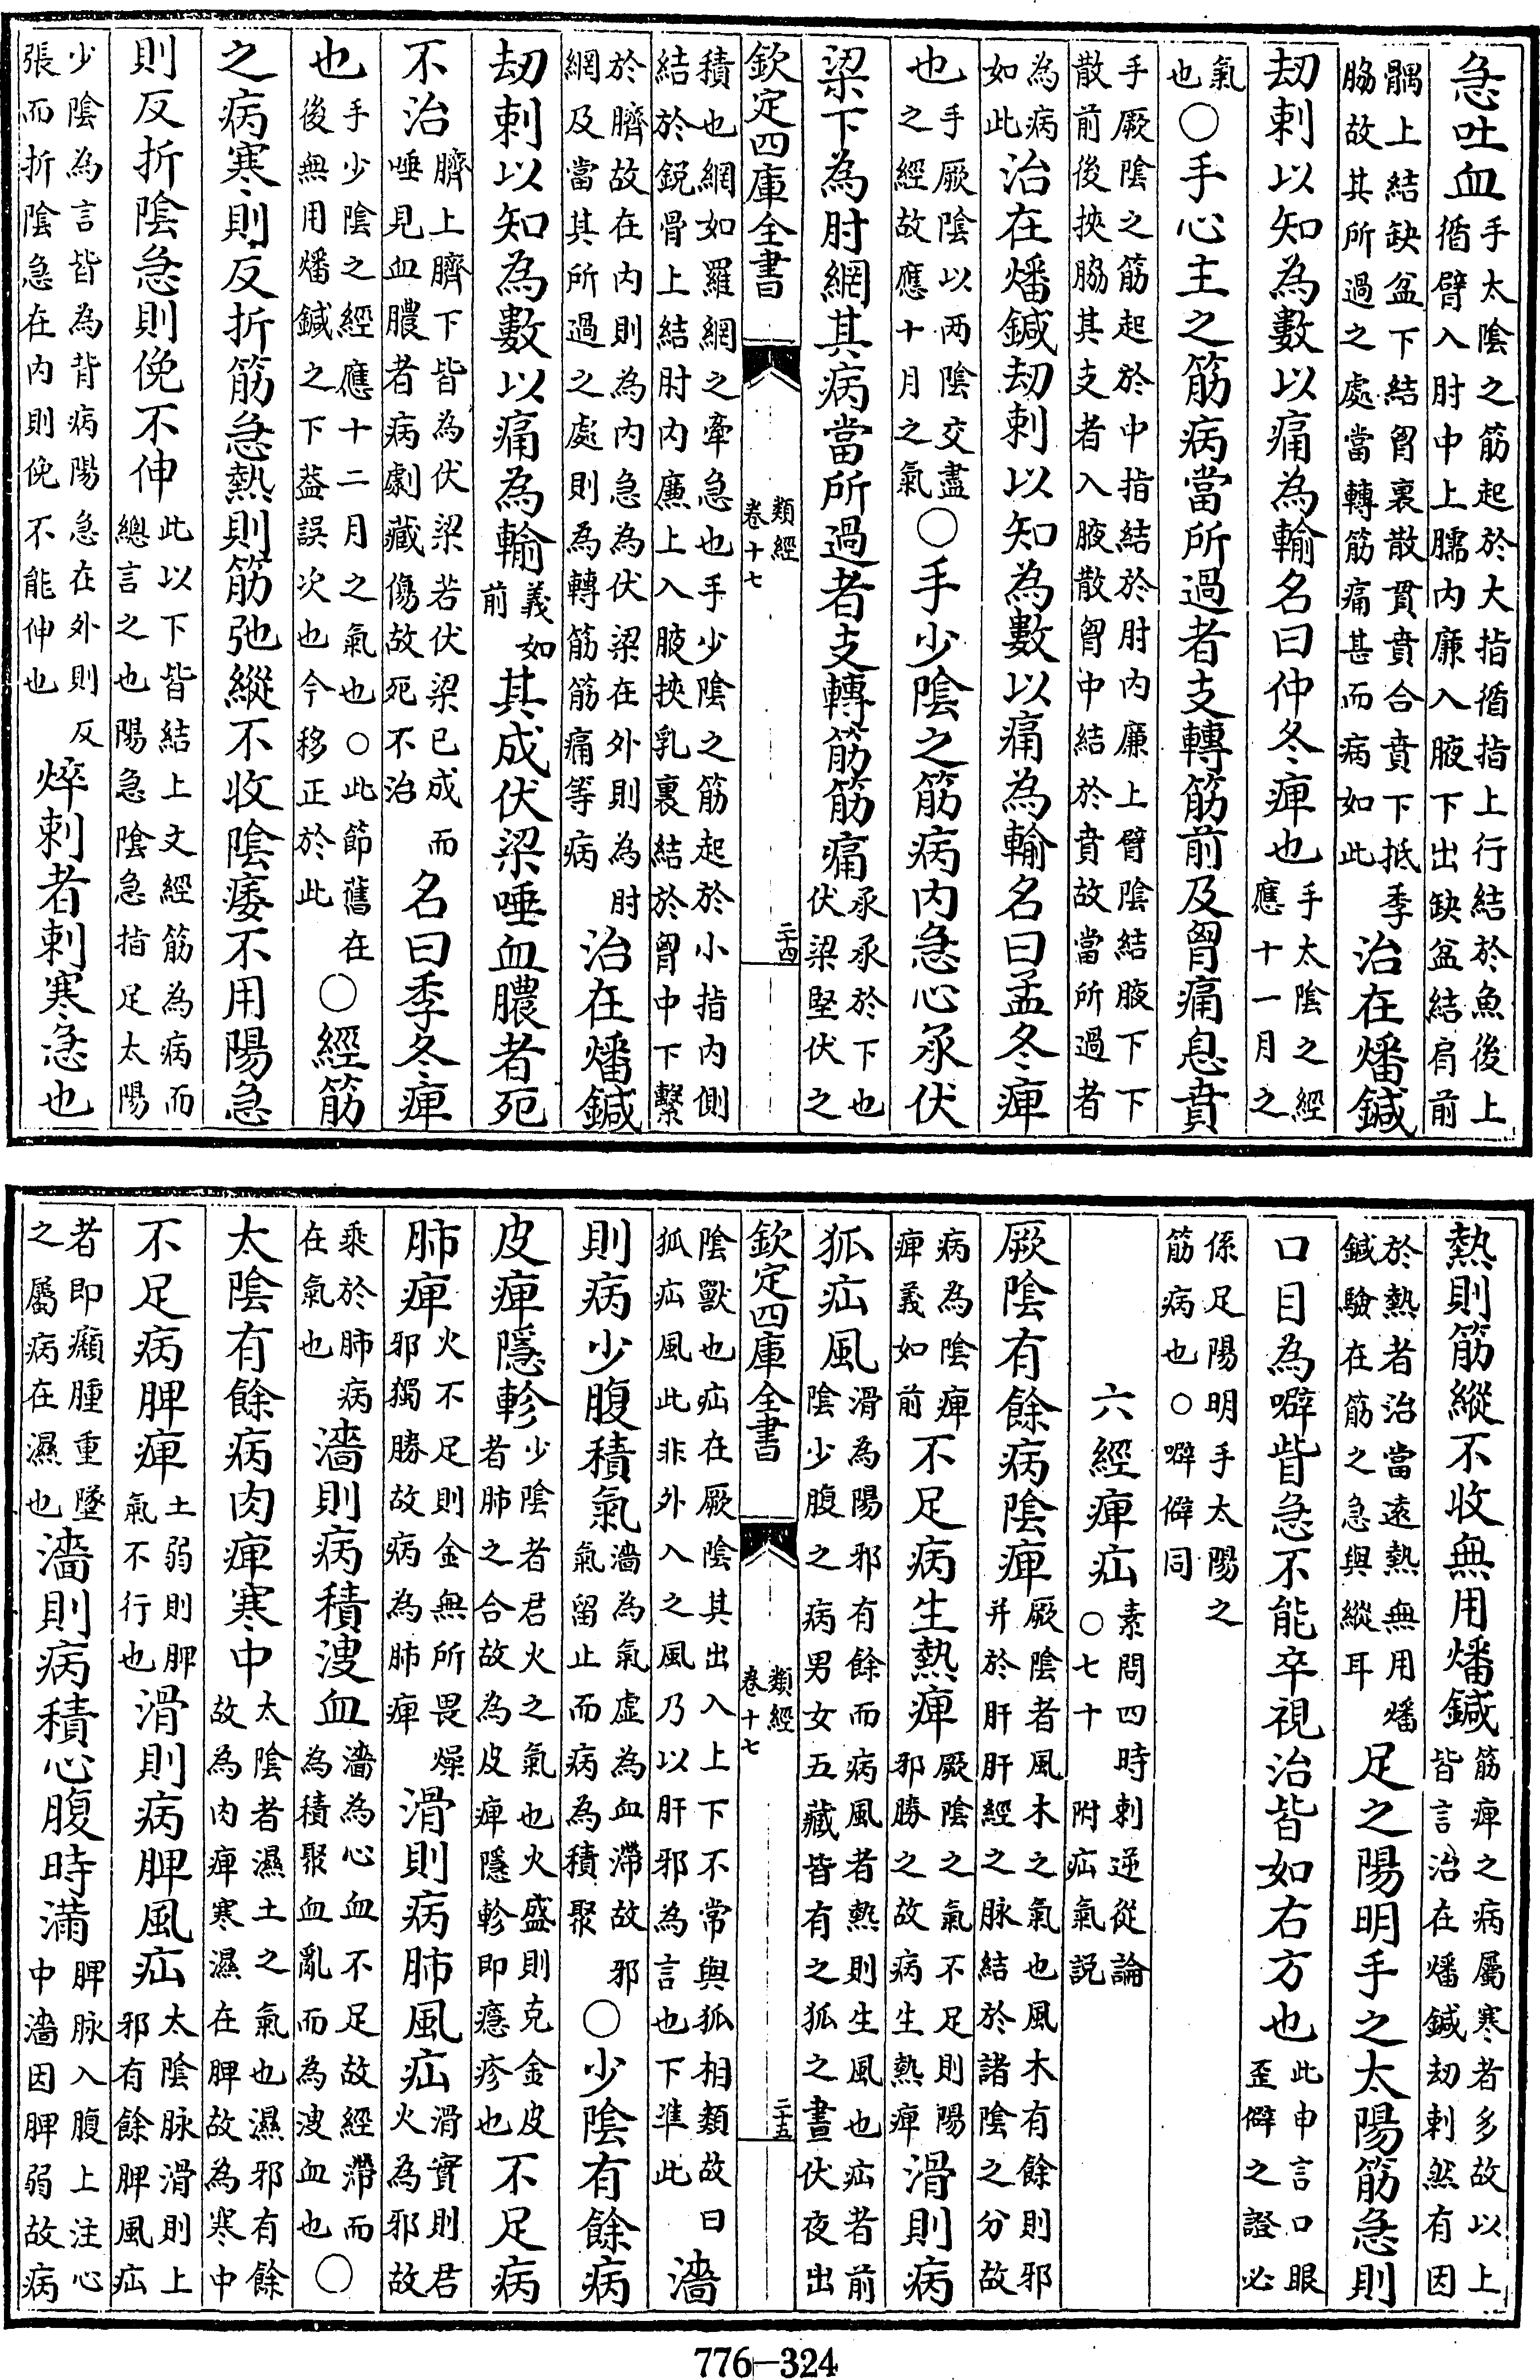 急吐血手太陰之筋起於大指循指上行結於魚後上循臂入肘中上臑內廉入腋下出缺盆結肩前
髃上結缺盆下結胷裏散貫賁合賁下抵季脇故其所過之處當轉筋痛甚而病如此治在燔鍼
刼刺以知為數以痛為輸名曰仲冬痺也手太陰之經應十一月之
氣也○手心主之筋病當所過者支轉筋前及胷痛息賁
手厥陰之筋起於中指結於肘內廉上臂陰結腋下下散前後挾脇其支者入腋散胷中結於賁故當所過者
為病如此治在燔鍼刼刺以知為數以痛為輸名曰孟冬痺
也手厥陰以兩陰交盡之經故應十月之氣○手少陰之筋病內急心承伏
梁下為肘網其病當所過者支轉筋筋痛承承於下也伏梁堅伏之
欽定四庫全書 類經卷十七 二十四
積也網如羅網之牽急也手少陰之筋起於小指內側結於銳骨上結肘內廉上入腋挾乳裏結於胷中下繫
於臍故在內則為內急為伏梁在外則為肘網及當其所過之處則為轉筋筋痛等病治在燔鍼
刼刺以知為數以痛為輸義如前其成伏梁唾血膿者死
不治臍上臍下皆為伏梁若伏梁已成而唾見血膿者病劇藏傷故死不治名曰季冬痺
也手少陰之經應十二月之氣也○此節舊在後無用燔鍼之下葢誤次也今移正於此○經筋
之病寒則反折筋急熱則筋弛縱不收陰痿不用陽急
則反折陰急則俛不伸此以下皆結上文經筋為病而總言之也陽急陰急指足太陽
少陰為言皆為背病陽急在外則反張而折陰急在內則俛不能伸也焠刺者刺寒急也
熱則筋縱不收無用燔鍼筋痺之病屬寒者多故以上皆言治在燔鍼刼刺然有因
於熱者治當遠熱無用燔鍼驗在筋之急與縱耳足之陽明手之太陽筋急則
口目為噼眥急不能卒視治皆如右方也此申言口眼歪僻之證必
係足陽明手太陽之筋病也○噼僻同
六經痺疝素問四時刺逆從論○七十 附疝氣説
厥陰有餘病陰痺厥陰者風木之氣也風木有餘則邪并於肝肝經之脉結於諸陰之分故
病為陰痺痺義如前不足病生熱痺厥陰之氣不足則陽邪勝之故病生熱痺滑則病
狐疝風滑為陽邪有餘而病風者熱則生風也疝者前陰少腹之病男女五藏皆有之狐之晝伏夜出
欽定四庫全書 類經卷十七 二十五
陰獸也疝在厥陰其出入上下不常與狐相類故曰狐疝風此非外入之風乃以肝邪為言也下準此濇
則病少腹積氣濇為氣虛為血滯故邪氣留止而病為積聚○少陰有餘病
皮痺隱軫少陰者君火之氣也火盛則克金皮者肺之合故為皮痺隱軫即癮疹也不足病
肺痺火不足則金無所畏燥邪獨勝故病為肺痺滑則病肺風疝滑實則君火為邪故
乘於肺病在氣也濇則病積溲血濇為心血不足故經滯而為積聚血亂而為溲血也○
太陰有餘病肉痺寒中太陰者濕土之氣也濕邪有餘故為肉痺寒濕在脾故為寒中
不足病脾痺土弱則脾氣不行也滑則病脾風疝太陰脉滑則上邪有餘脾風疝
者即㿗腫重墜之屬病在濕也濇則病積心腹時滿脾脉入腹上注心中濇因脾弱故病
776—324